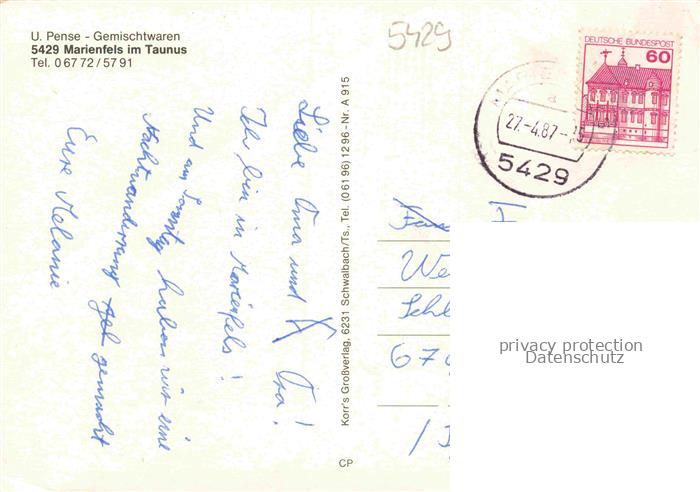 U. Pense - Gemischtwaren
5429 Marienfels im Taunus
Tel. 0 67 72 / 57 91
5429
DEUTSCHE BUNDESPOST
60
27.-4.87-
5429
Liebe Oma und Opa!
Ich bin in Marienfels!
Und am Sonntag haben wir eine
Nachtwanderung gemacht
Eure Melanie
Korr's Großverlag, 6231 Schwalbach/Ts., Tel. (0 61 96) 12 96 - Nr. A 915
CP
We
Schl
67
privacy protection
Datenschutz